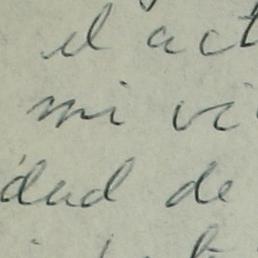 el act
mi vi
dad de